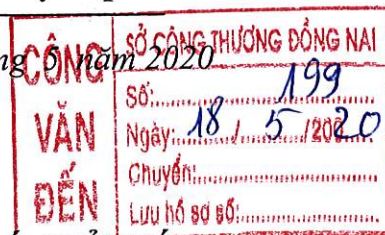 ng 5 năm 2020
CÔNG VĂN ĐẾN
SỞ CÔNG THƯƠNG ĐỒNG NAI
Số: 199
Ngày: 18 / 5 / 2020
Chuyển:
Lưu hồ sơ số: